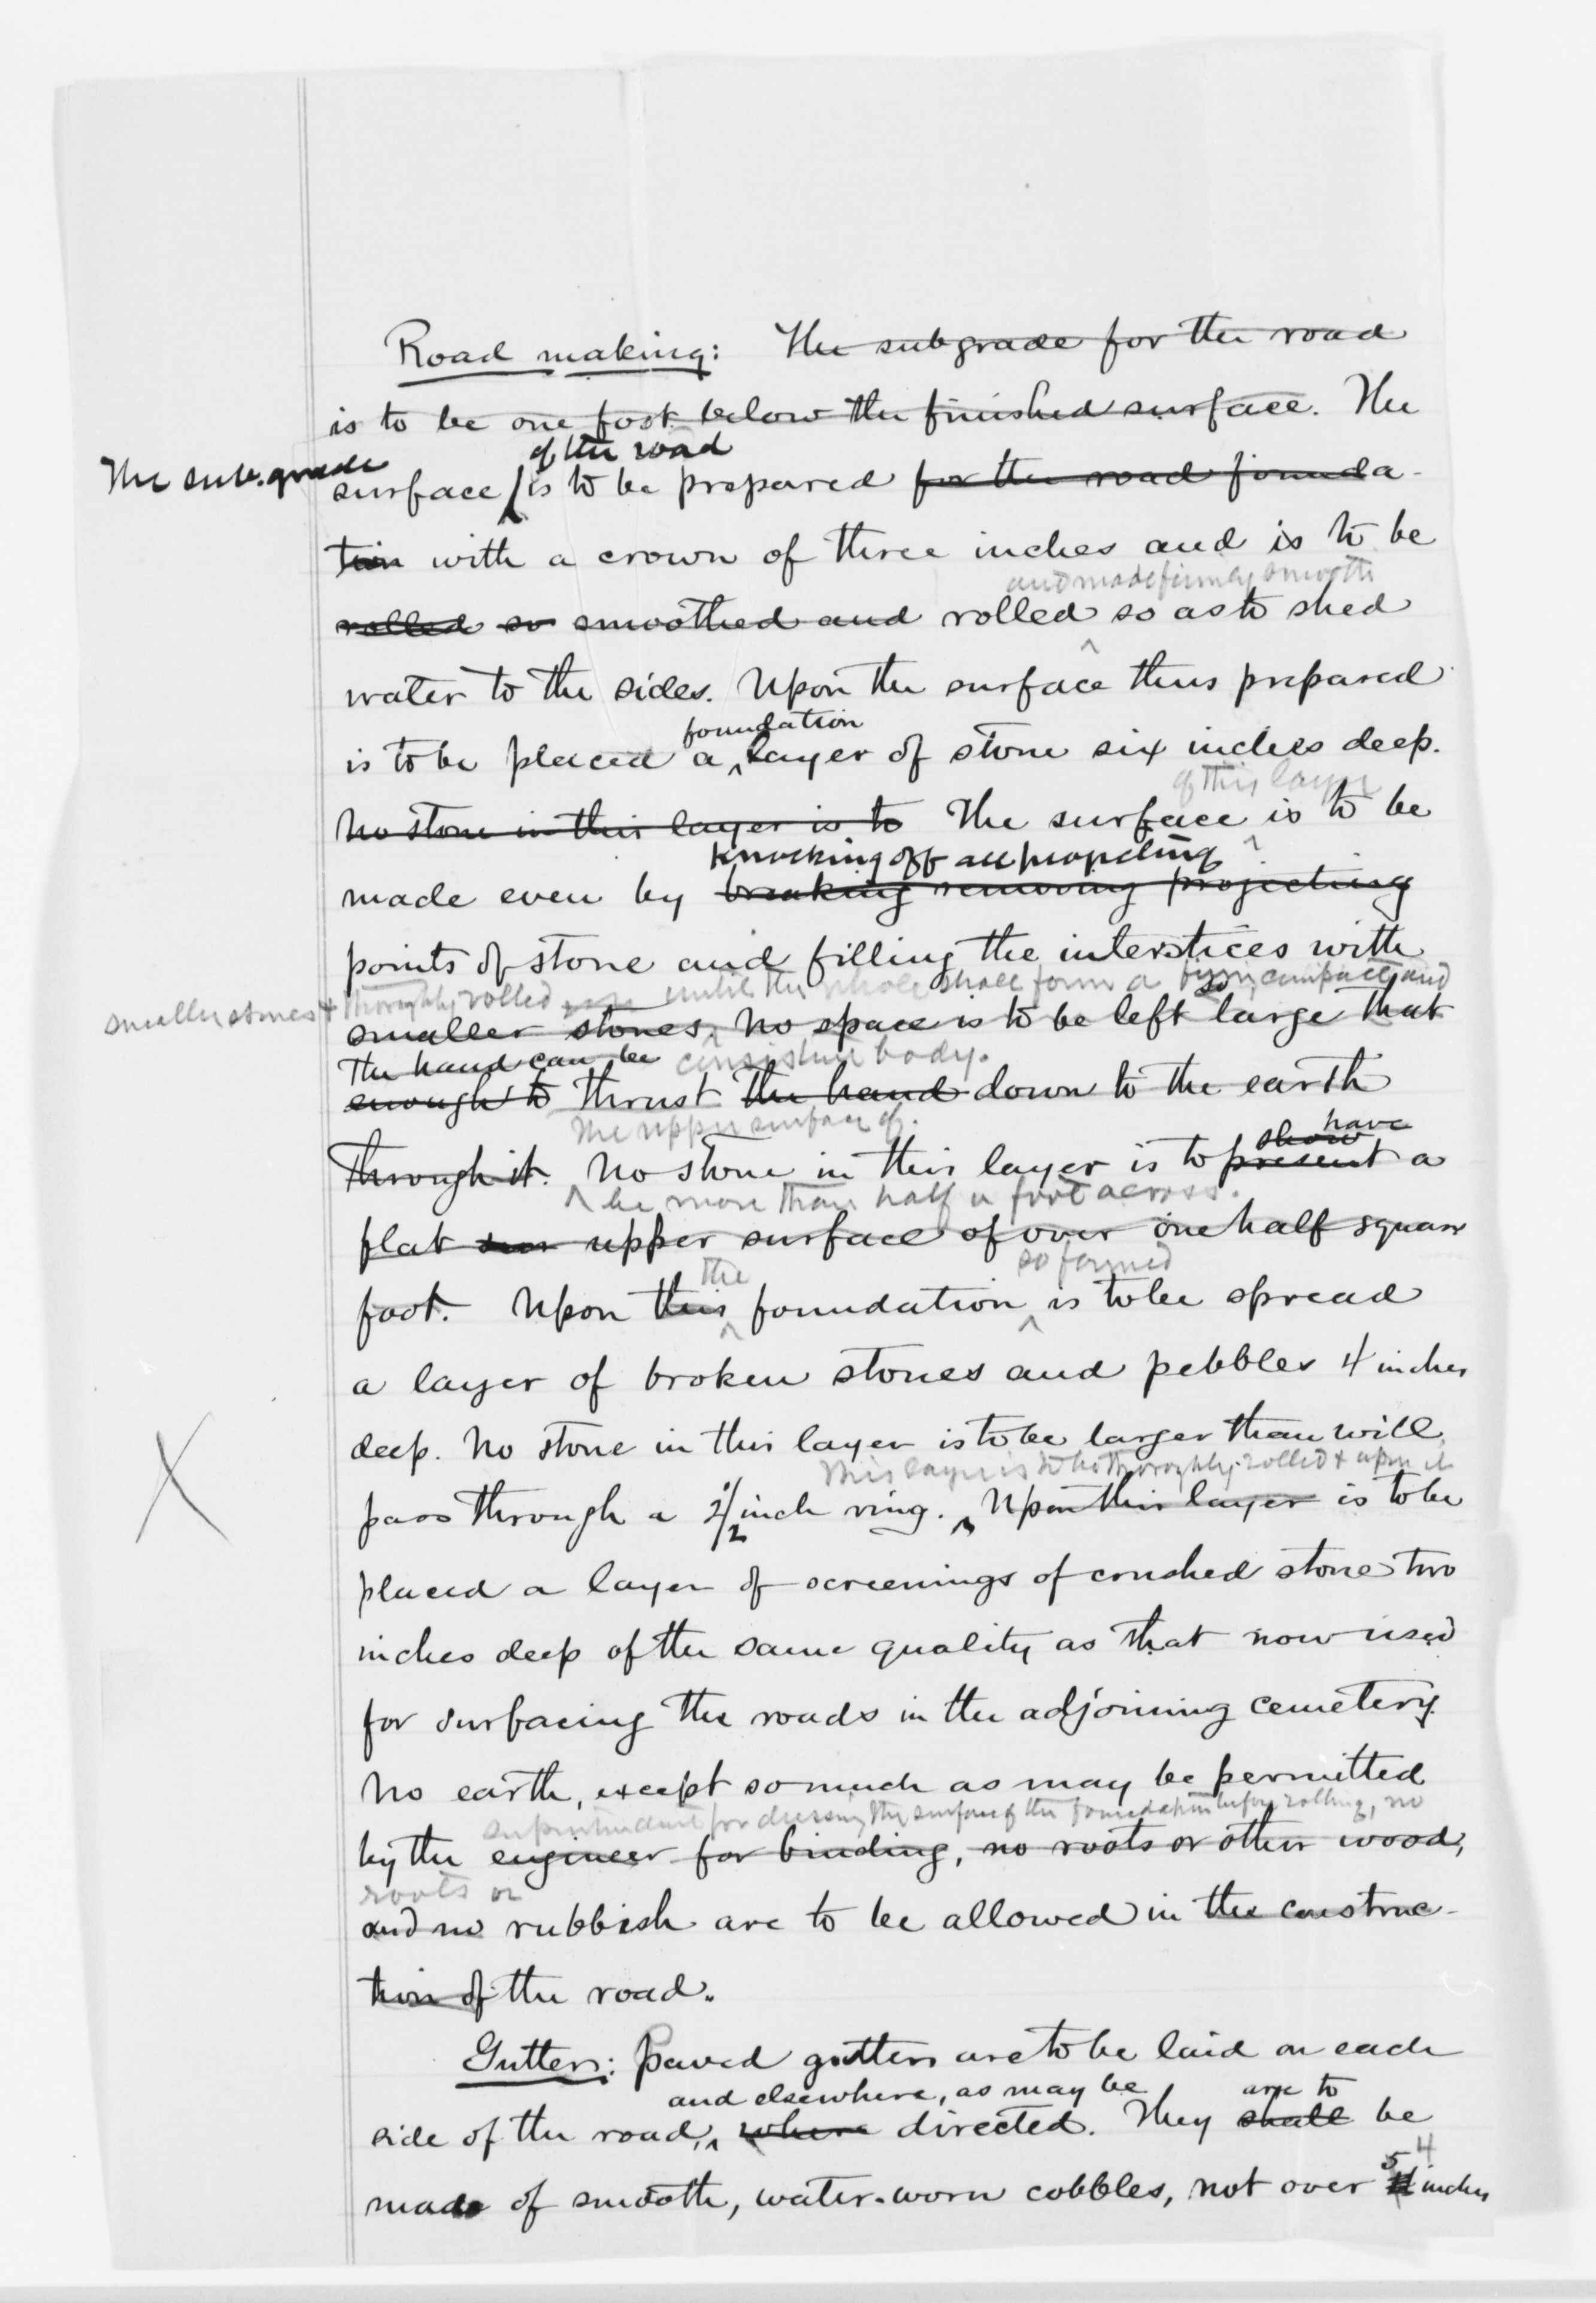 Road making: The subgrade for the road
is to be one foot below the finished surface. The
of the road
The sub-grade
surface is to be prepared for the road founda-
tion with a crown of three inches and is to be
and made firm & smooth
rolled so smoothed and rolled so as to shed
water to the sides. Upon the surface thus prepared
foundation
is to be placed a layer of stone six inches deep.
of this layer
No stone in this layer is to The surface is to be
knocking off all projecting
made even by breaking removing projecting
points of stone and filling the interstices with
smaller stones & thoroughly rolled until the whole shall form a firm, compact, and
so
smaller stones. No space is to be left large that
the hand can be consistent body.
enough to thrust the hand down to the earth
The upper surface of
show have
through it. No stone in this layer is to present a
be more than half a foot across.
flat upper surface of over one half square
the so formed
foot. Upon this foundation is to be spread
a layer of broken stones and pebbles 4 inches
deep. No stone in this layer is to be larger than will
This layer is to be thoroughly rolled & upon it
pass through a 2 1/2 inch ring. Upon this layer is to be
placed a layer of screenings of crushed stone two
inches deep of the same quality as that now used
for surfacing the roads in the adjoining cemetery.
No earth, except so much as may be permitted
superintendent for dressing the surface of the foundation before rolling, no
by the engineer for binding, no roots or other wood,
roots or
and no rubbish are to be allowed in the construc-
tion of the road.
Gutters: Paved gutters are to be laid on each
and elsewhere, as may be are to
side of the road, where directed. They shall be
5 4
made of smooth, water-worn cobbles, not over inches